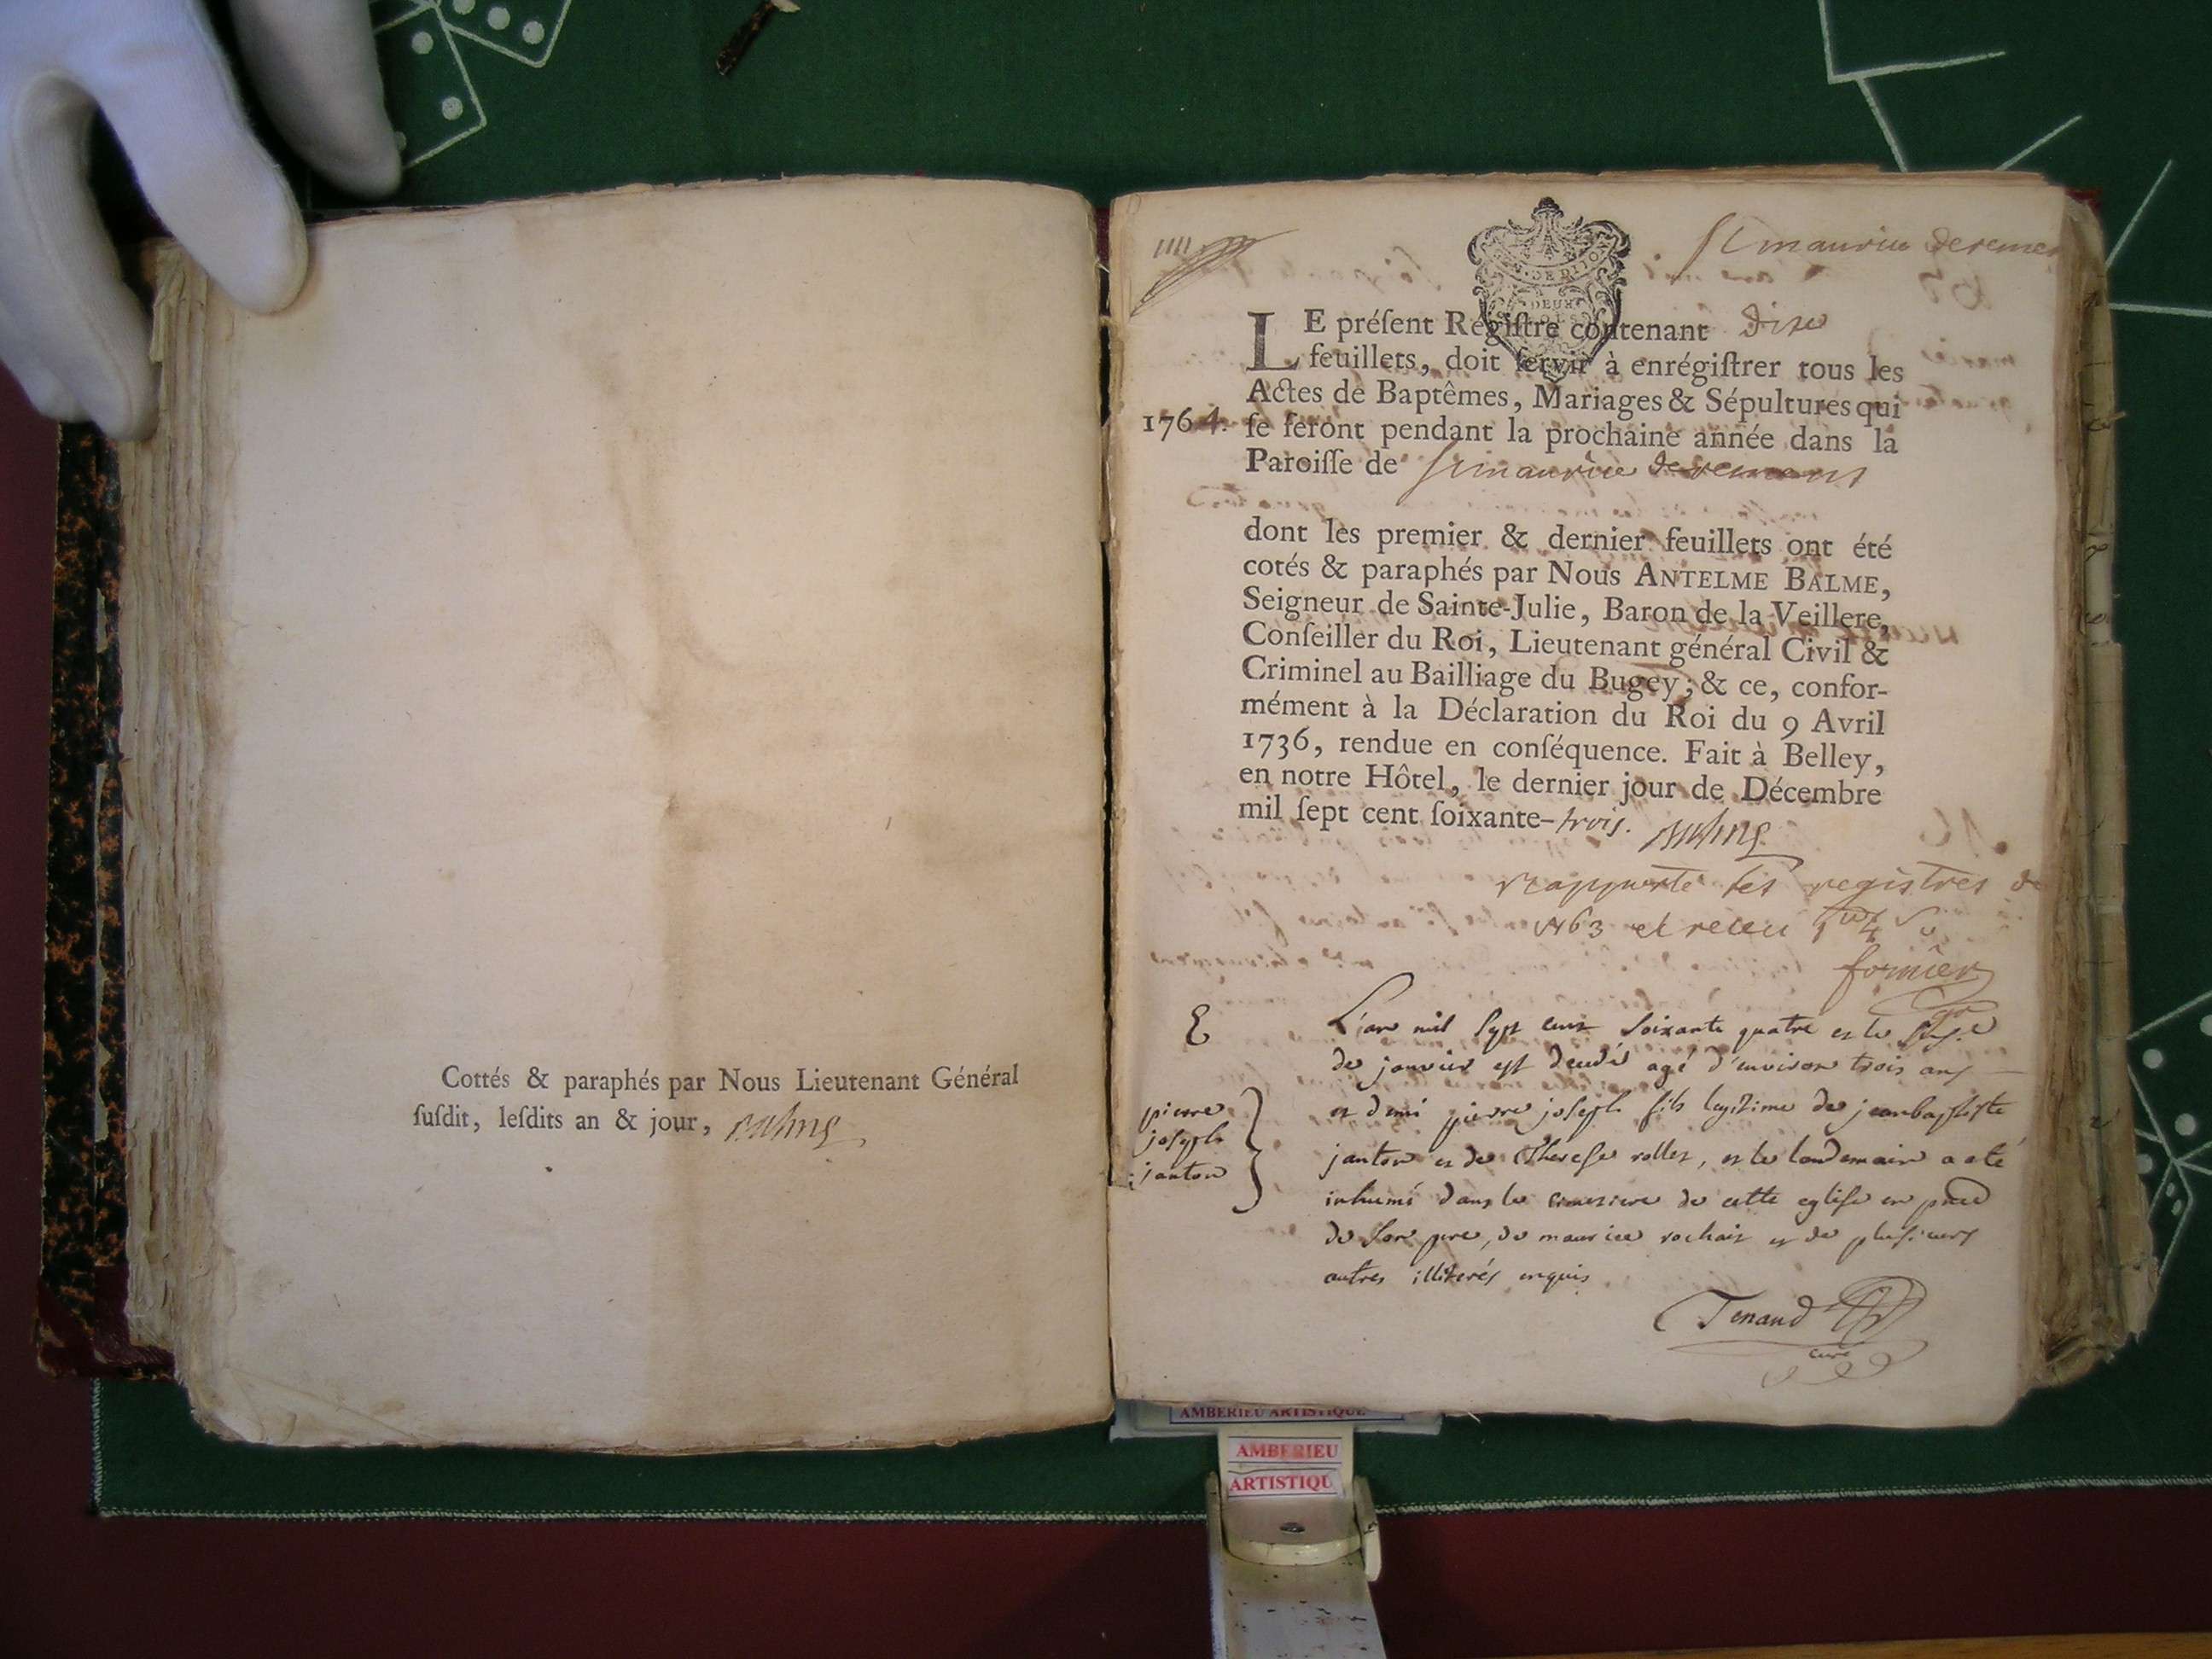 Cottés & paraphés par Nous Lieutenant Général
ſuſdit, leſdits an & jour,
St maurice de remens
DEUX
LE préſent Regiſtre contenant dix
feuillets, doit ſervir à enrégiſtrer tous les
Actes de Baptêmes, Mariages & Sépultures qui
1764. ſe feront pendant la prochaine année dans la
Paroiſſe de St maurice de remens
dont les premier & dernier feuillets ont été
cotés & paraphés par Nous ANTELME BALME,
Seigneur de Sainte-Julie, Baron de la Veillere,
Conſeiller du Roi, Lieutenant général Civil &
Criminel au Bailliage du Bugey; & ce, confor-
mément à la Déclaration du Roi du 9 Avril
1736, rendue en conſéquence. Fait à Belley,
en notre Hôtel, le dernier jour de Décembre
mil ſept cent ſoixante-trois.
rapporté les registres de
1763 et receu
fornier
L'an mil sept cent soixante quatre et le
de janvier est decedé agé d'environ trois ans
pierre
joseph
janton
et demi pierre joseph fils legitime de jean baptiste
janton et de Therese rollet, et le lendemain a eté
inhumé dans le cimetiere de cette eglise en pnce
de son pere, de maurice rochait et de plusieurs
autres illiterés enquis
Tenand
curé
AMBERIEU ARTISTIQUE
AMBERIEU
ARTISTIQU